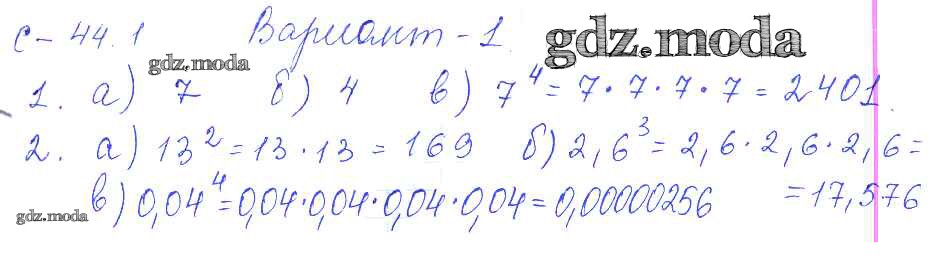 С-44.1 Вариант-1. gdz.moda
gdz.moda
1. а) 7 б) 4 в) 7⁴ = 7·7·7·7 = 2401.
2. а) 13² = 13·13 = 169 б) 2,6³ = 2,6·2,6·2,6 =
в) 0,04⁴ = 0,04·0,04·0,04·0,04 = 0,00000256 = 17,576
gdz.moda